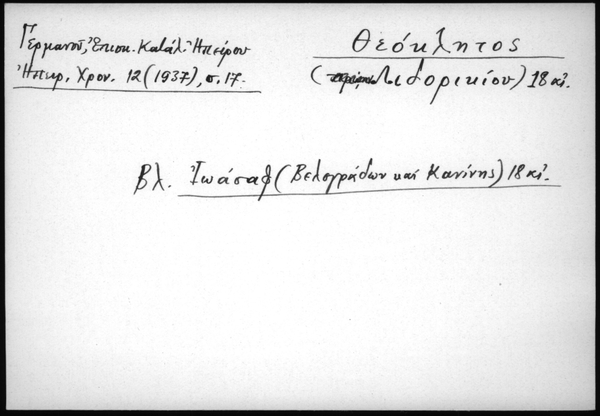 Γερμανοῦ, Ἐπισκ. Κατάλ. Ἠπείρου
Ἠπειρ. Χρον. 12 (1937), σ. 17.
Θεόκλητος
(Λιδορικίου) 18 αἰ.
Βλ. Ἰωάσαφ (Βελογράδων καὶ Κανίνης) 18 αἰ.